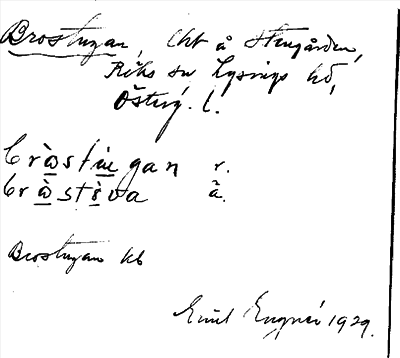 Brostugan, lht å Stengården,
Röks sn Lysings hd,
Österg. l.
bròstùgan r.
bròstòva ä.
Brostugan kb
Emil Engnér 1929.